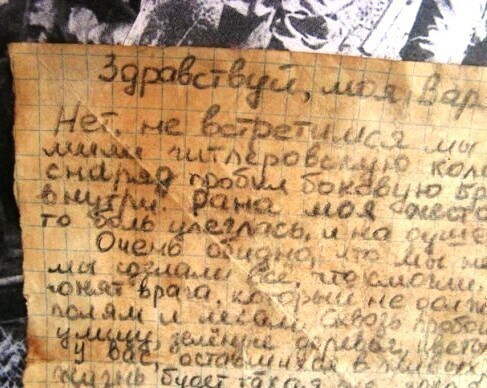 Здравствуй, моя Вар
Нет, не встретимся мы
мили гитлеровскую кол
снаряд пробил боковую бр
внутри. рана моя жесто
то боль улеглась, и на душе
Очень обидно, что мы не
мы сделали все, что смогли.
гонят врага, который не долж
полям и лесам. Сквозь пробои
улицу, зелёные деревья, цветы
у вас, оставшихся в живых,
жизнь будет такая